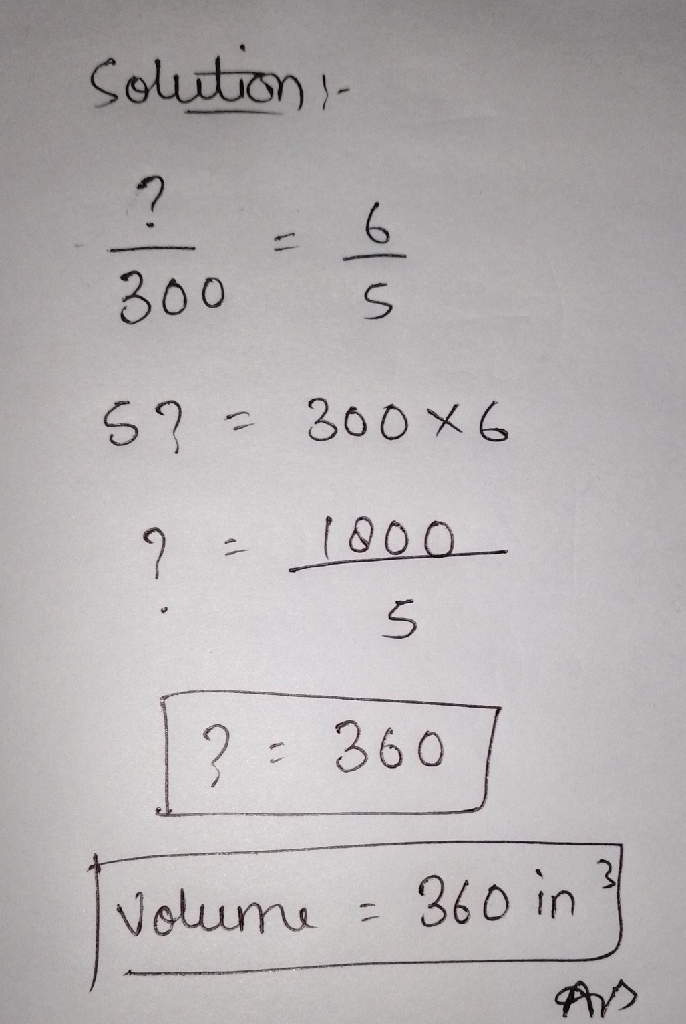 Solution :-
? / 300 = 6 / 5
5? = 300 × 6
? = 1800 / 5
? = 360
Volume = 360 in³
Ans